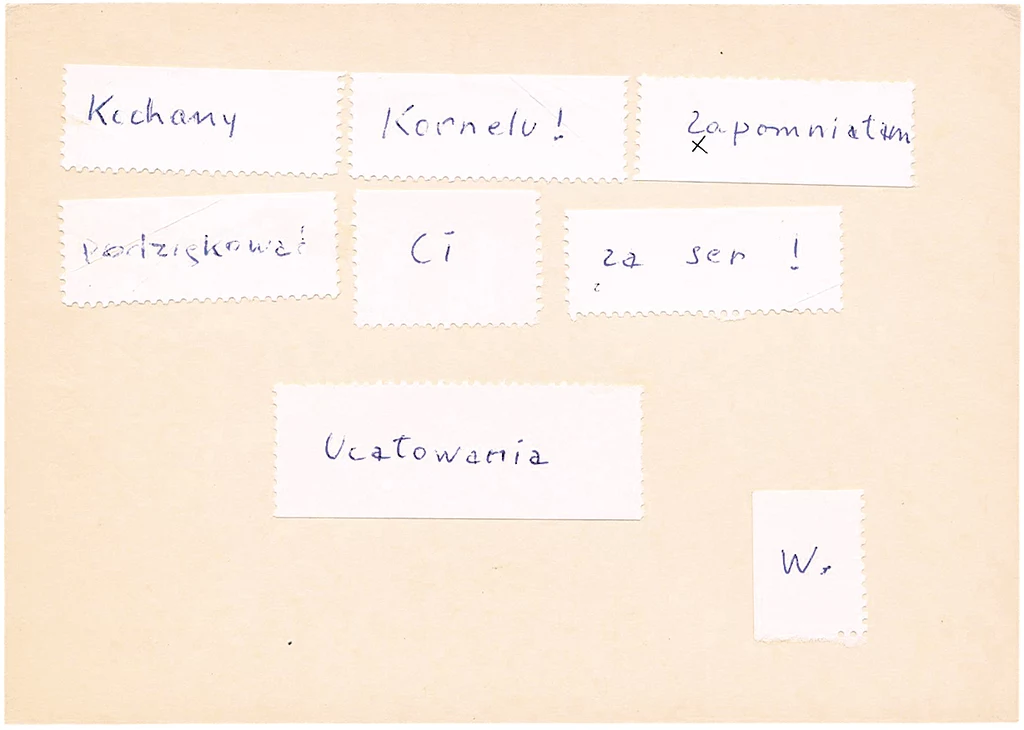 Kochany Kornelu! Zapomniałam
podziękować Ci za ser!
Ucałowania
W.